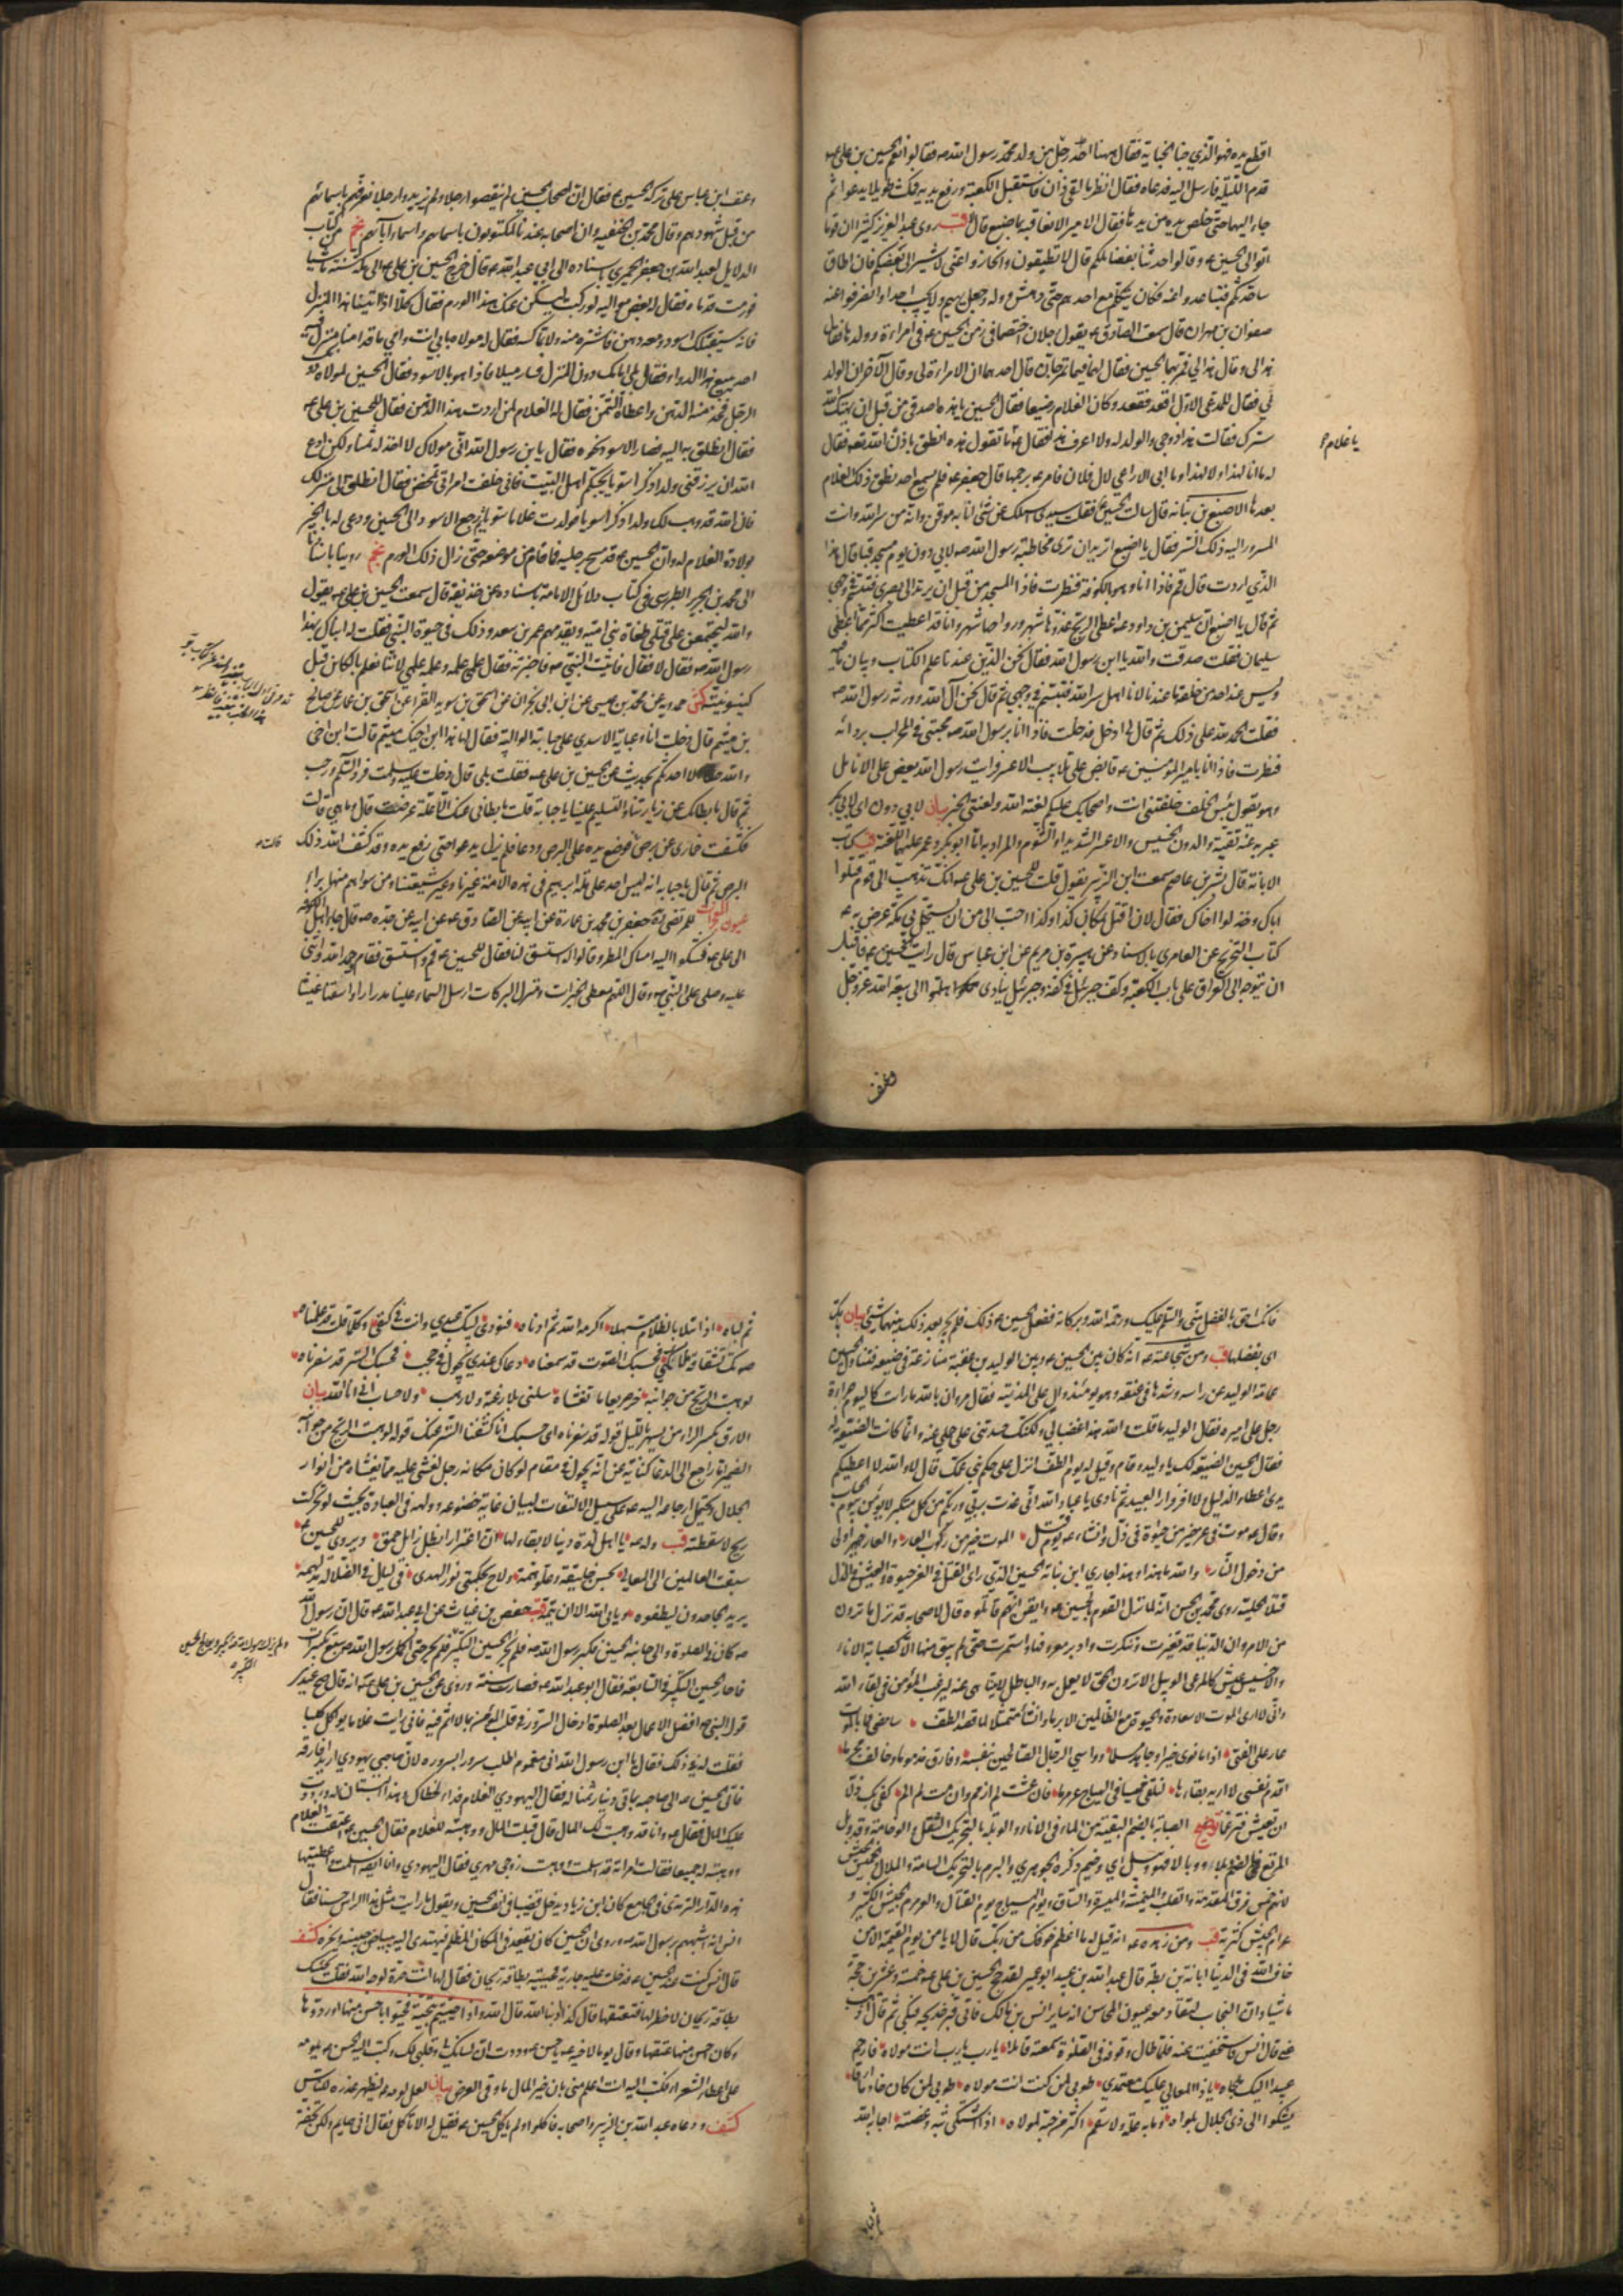 اقطع يده فهو الذي جنا الجناية فقال ههنا احد رجل من ولد محمد رسول الله ص فقالوا نعم الحسين بن علي ع
قدم الليلة فارسل اليه فدعاه فقال انظر ما لقي ذان فاستقبل الكعبة ورفع يديه فمكث طويلا يدعو ثم
جاء اليهما حتى خلص يده من يدها فقال الامير الا نعاقبه بما صنع قال لا قب روى عبد العزيز كثير ان قوما
اتوا الى الحسين ع وقالوا حدثنا بفضائلكم قال لا تطيقون وانحازوا عني لاشير الى بعضكم فان اطاق
ساحدثكم فتباعدوا عنه فكان يتكلم مع احدهم حتى دهش ووله وجعل يهيم ولا يجيب احدا وانصرفوا عنه
صفوان بن مهران قال سمعت الصادق ع يقول رجلان اختصما في زمن الحسين ع في امراة وولدها فقال
هذا لي وقال هذا لي فمر بهما الحسين فقال لهما فيما تمرجان قال احدهما ان الامراة لي وقال الآخر ان الولد
لي فقال للمدعي الاول اقعد فقعد وكان الغلام رضيعا فقال الحسين يا هذه اصدقي من قبل ان يهتك الله
سترك فقالت هذا زوجي والولد له ولا اعرف هذا فقال ع ما تقول هذه انطق باذن الله تعه فقال
يا غلام
له ما انا لهذا ولا لهذا وما ابي الا راعي لال فلان فامر ع برجمها قال جعفر ع فلم يسمع احد نطق ذلك الغلام
بعدها الاصبغ بن نباته قال سالت الحسين ع فقلت سيدي اسالك عن شئ انا به موقن وانه من سر الله وانت
المسرور اليه ذلك السر فقال يا اصبغ اتريد ان ترى مخاطبة رسول الله ص لابي دون يوم مسجد قبا قال هذا
الذي اردت قال قم فاذا انا وهو بالكوفة فنظرت فاذا المسجد من قبل ان يرتد الي بصري فتبسم في وجهي
ثم قال يا اصبغ ان سليمن بن داود ع اعطي الريح غدوها شهر ورواحها شهر وانا قد اعطيت اكثر مما اعطي
سليمان فقلت صدقت والله يا ابن رسول الله فقال نحن الذين عندنا علم الكتاب وبيان ما فيه
وليس عند احد من خلقه ما عندنا لانا اهل سر الله فتبسم في وجهي ثم قال نحن آل الله وورثة رسول الله ص
فقلت الحمد لله على ذلك ثم قال لي ادخل فدخلت فاذا انا برسول الله ص محتبئ في المحراب بردائه
فنظرت فاذا انا بامير المؤمنين ع قابض على تلابيب الاعسر فرايت رسول الله يعض على الانامل
وهو يقول بئس الخلف خلفتني انت واصحابك عليكم لعنة الله ولعنتي الخبر بيان لابي دون اي لابي بكر
عبر به عنه تقية والدون الخسيس والاعسر الشديد او الشوم والمراد به اما ابو بكر او عمر عليهما اللعنة قب كتاب
الابانة قال بشر بن عاصم سمعت ابن الزبير يقول قلت للحسين بن علي ع انك تذهب الى قوم قتلوا
اباك وخذلوا اخاك فقال لان اقتل بمكان كذا وكذا احب الي من ان يستحل بي مكة عرض به ع
كتاب التخريج عن العامري بالاسناد عن هبيرة بن مريم عن ابن عباس قال رايت الحسين ع قبل
ان يتوجه الى العراق على باب الكعبة وكف جبرئيل في كفه وجبرئيل ينادي هلموا الى بيعة الله عز وجل
وعنف
وعنف ابن عباس على تركه الحسين ع فقال ان اصحاب الحسين لم ينقصوا رجلا ولم يزيدوا رجلا نعرفهم باسمائهم
من قبل شهودهم وقال محمد بن الحنفية وان اصحابه عندنا لمكتوبون باسمائهم واسماء آبائهم نجم من كتاب
الدلايل لعبد الله بن جعفر الحميري باسناده الى ابي عبد الله ع قال خرج الحسين بن علي ع الى مكة سنة ماشيا
فورمت قدماه فقال له بعض مواليه لو ركبت ليسكن عنك هذا الورم فقال كلا اذا اتينا هذا المنزل
فانه سيقبلك اسود ومعه دهن فاشتره منه ولا تماكسه فقال له مولاه بابي انت وامي ما قدامنا منزل فيه
احد يبيع هذا الدواء فقال بلى امامك دون المنزل فسار ميلا فاذا هو بالاسود فقال الحسين لمولاه دونك
الرجل فخذ منه الدهن واعطاه الثمن فقال له الغلام لمن اردت هذا الدهن فقال للحسين بن علي ع
فقال انطلق به اليه فصار الاسود نحوه فقال يا بن رسول الله اني مولاك لا اخذ له ثمنا ولكن ادع
الله ان يرزقني ولدا ذكرا سويا يحبكم اهل البيت فاني خلفت امراتي تمخض فقال انطلق الى منزلك
فان الله قد وهب لك ولدا ذكرا سويا فولدت غلاما سويا ثم رجع الاسود الى الحسين ودعى له بالخير
بولادة الغلام له وان الحسين ع قد مسح رجليه فما قام من موضعه حتى زال ذلك الورم نجم روينا باسنادنا
الى محمد بن جرير الطبرسي في كتاب دلائل الامامة باسناده عن حذيفة قال سمعت الحسين بن علي ع يقول
والله ليجتمعن على قتلي طغاة بني امية ويقدمهم عمر بن سعد وذلك في حيوة النبي فقلت له انباك بهذا
رسول الله ص فقال لا فقال فاتيت النبي ص فاخبرته فقال علمي علمه وعلمه علمي لانا نعلم بالكاين قبل
كينونيته كش حمدويه عن محمد بن عيسى عن ابن ابي نجران عن اسحق بن سويد الفرا عن اسحق بن عمار عن صالح
بن ميثم قال دخلت انا وعباية الاسدي على حبابة الوالبية فقال لها هذا ابن اخيك ميثم قالت ابن اخي
والله حقا الا احدثكم بحديث عن الحسين بن علي ع فقلت بلى قال دخلت عليه وسلمت فرد السلم ورحب
ثم قال ما بطاك عن زيارتنا والتسليم علينا يا حبابة قلت ما بطاني عنك الا علة عرضت قال وما هي قالت
قالت ع
فكشفت خماري عن برص فوضع يده على البرص ودعا فلم يزل يدعو حتى رفع يده وقد كشف الله ذلك
البرص ثم قال يا حبابة انه ليس احد على ملة ابراهيم في هذه الامة غيرنا وغير شيعتنا ومن سواهم منها براء
عيون المعجزات للمرتضى ره جعفر بن محمد بن عمارة عن ابيه عن الصادق ع عن ابيه عن جده ع قال جاء اهل الكوفة
الى علي ع فشكوا اليه امساك المطر وقالوا له استسق لنا فقال للحسين ع قم واستسق فقام وحمد الله واثنى
عليه وصلى على النبي ص وقال اللهم معطي الخيرات ومنزل البركات ارسل السماء علينا مدرارا واسقنا غيثا
فانك احق بالفضل مني والسلم عليك ورحمة الله وبركاته ففعل الحسين ع ذلك فلم يجر بعد ذلك بينهما شئ بيان بك
اي بفضلها قب ومن شجاعته ع انه كان بين الحسين ع وبين الوليد بن عقبة منازعة في ضيعة فتناول الحسين
عمامة الوليد عن راسه وشدها في عنقه وهو يومئذ وال على المدينة فقال مروان بالله ما رايت كاليوم جراءة
رجل على اميره فقال الوليد ما قلت والله هذا غضبا لي ولكنك حسدتني على حلمي عنه وانما كانت الضيعة له
فقال الحسين الضيعة لك يا وليد وقام وقيل له يوم الطف انزل على حكم بني عمك قال لا والله لا اعطيكم
يدي اعطاء الذليل ولا افر فرار العبيد ثم نادى يا عباد الله اني عذت بربي وربكم من كل متكبر لا يؤمن بيوم الحساب
وقال ع موت في عز خير من حياة في ذل وانشاء ع يوم قتل الموت خير من ركوب العار والعار خير اولى
من دخول النار والله ما هذا وهذا جاري ابن نباتة الحسين الذي راى القتل في العز حيوة والعيش في الذل
قتلا الحلية روى محمد بن الحسن انه لما نزل القوم بالحسين ع وايقن انهم قاتلوه قال لاصحابه قد نزل ما ترون
من الامر وان الدنيا قد تغيرت وتنكرت وادبر معروفها واستمرت حتى لم يبق منها الا كصبابة الاناء
والا خسيس عيش كالمرعى الوبيل الا ترون الحق لا يعمل به والباطل لا يتناهى عنه ليرغب المؤمن في لقاء الله
واني لا ارى الموت الا سعادة والحيوة مع الظالمين الا برما وانشاء متمثلا لما قصد الطف سامضي فما بالموت
عار على الفتى اذا ما نوى خيرا وجاهد مسلما وواسى الرجال الصالحين بنفسه وفارق مذموما وخالف مجرما
اقدم نفسي لا اريد بقاءها لنلقى خميسا في الهياج عرمرما فان عشت لم اذمم وان مت لم الم كفى بك ذلا
ان تعيش فترغما توضيح الصبابة بالضم البقية من الماء في الاناء والوبلة بالتحريك الثقل والوخامة وقد وبل
المرتع بالضم وبلا ووبالا فهو وبيل اي وخيم ذكره الجوهري والبرم بالتحريك السامة والملال الخميس الجيش
لانهم خمس فرق المقدمة والقلب والميمنة والميسرة والساق ويوم الهياج يوم القتال والعرمرم الجيش الكثير و
عرام الجيش كثرته قب ومن زهده ع انه قيل له ما اعظم خوفك من ربك قال لا يامن يوم القيمة الا من
خاف الله في الدنيا ابانة بن بطة قال عبد الله بن عبيد ابو عمير لقد حج الحسين بن علي ع خمسة وعشرين حجة
ماشيا وان النجاب لتقاد معه عيون المحاسن انه ساير انس بن مالك فاتى قبر خديجة فبكى ثم قال اذهب
عني قال انس فاستخفيت عنه فلما طال وقوفه في الصلوة سمعته قائلا يا رب يا رب انت مولاه فارحم
عبيدا اليك ملجاه يا ذا المعالي عليك معتمدي طوبى لمن كنت انت مولاه طوبى لمن كان خائفا ارقا
يشكو الى ذي الجلال بلواه وما به علة ولا سقم اكثر من حبه لمولاه اذا اشتكى بثه وغصته اجابه الله
ثم لباه اذا ابتلا بالظلام مبتهلا اكرمه الله ثم ادناه فنودي لبيك عبدي وانت في كنفي وكلما قلت قد علمناه
صوتك تشتاقه ملائكتي فحسبك الصوت قد سمعناه دعاك عندي يجول في حجب فحسبك الستر قد سفرناه
لو هبت الريح من جوانبه خر صريعا لما تغشاه سلني بلا رغبة ولا رهب ولا حساب اني انا الله بيان
الارق بكسر الراء من يسهر بالليل قوله قد سفرناه اي حسبك انا كشفنا الستر عنك قوله لو هبت الريح من جوانبه
الضمير اما راجع الى الدعاء كناية عن انه يجول في مقام لو كان مكانه رجل لغشي عليه مما يغشاه من انوار
الجلال ويحتمل ارجاعه اليه ع على سبيل الالتفات لبيان غاية خضوعه وولهه في العبادة بحيث لو تحركت
ريح لاسقطته قب وله ع يا اهل لذة دنيا لا بقاء لها ان اغترارا بظل زايل حمق ويروى للحسين ع
سبقت العالمين الى المعالي بحسن خليقة وعلو همة ولاح بحكمتي نور الهدى في ليال في الضلالة مدلهمة
يريد الجاحدون ليطفؤه ويابى الله الا ان يتمه قب حفص بن غياث عن ابي عبد الله ع قال ان رسول الله
ص كان في الصلوة والى جانبه الحسين فكبر رسول الله ص فلم يحر الحسين التكبير فلم يحر حتى اكمل رسول الله ص سبع تكبيرات
فاحار الحسين التكبير في السابعة فقال ابو عبد الله ع فصارت سنة وروي عن الحسين بن علي ع انه قال صح عندي
قول النبي ص افضل الاعمال بعد الصلوة ادخال السرور في قلب المؤمن بما لا اثم فيه فاني رايت غلاما يواكل كلبا
فقلت له في ذلك فقال يا ابن رسول الله اني مغموم اطلب سرورا بسروره لان صاحبي يهودي اريد افارقه
فاتى الحسين ع الى صاحبه بماتي دينار ثمنا له فقال اليهودي الغلام فداء لخطاك وهذا البستان له ورددت
عليك المال فقال ع وانا قد وهبت لك المال قال قبلت المال ووهبته للغلام فقال الحسين ع اعتقت الغلام
ووهبته له جميعا فقالت امراته قد اسلمت ووهبت زوجي مهري فقال اليهودي وانا ايضا اسلمت واعطيتها
هذه الدار الترمذي في الجامع كان ابن زياد يدخل قضيبا في انف الحسين ويقول ما رايت مثل هذا الراس حسنا فقال
انس انه اشبههم برسول الله ص وروي ان الحسين كان يقعد في المكان المظلم فيهتدى اليه ببياض جبينه ونحره كشف
قال انس كنت عند الحسين ع فدخلت عليه جارية فحيته بطاقة ريحان فقال لها انت حرة لوجه الله فقلت تحييك
بطاقة ريحان لا خطر لها فتعتقها قال كذا ادبنا الله قال الله واذا حييتم بتحية فحيوا باحسن منها او ردوها
وكان احسن منها عتقها وقال يوما لاخيه ع يا حسن وددت ان لسانك لي وقلبي لك وكتب اليه الحسن ع يلومه
على اعطاء الشعراء فكتب اليه انت اعلم مني بان خير المال ما وقى العرض بيان لعل لومه ع ليظهر عذره للناس
كشف ودعاه عبد الله بن الزبير واصحابه فاكلوا ولم ياكل الحسين ع فقيل له الا تاكل فقال اني صايم ولكن تحفة